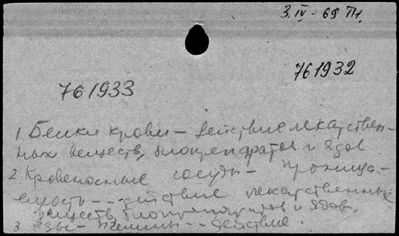 3.IV-69 ТП.
761932
761933
1 Белки крови - действие лекарствен-
ных веществ, биопрепаратов и ядов
2 Кровеносные сосуды - проница-
емость -- действие лекарственных
веществ, биопрепаратов и ядов.
3 Яды - -- действие.